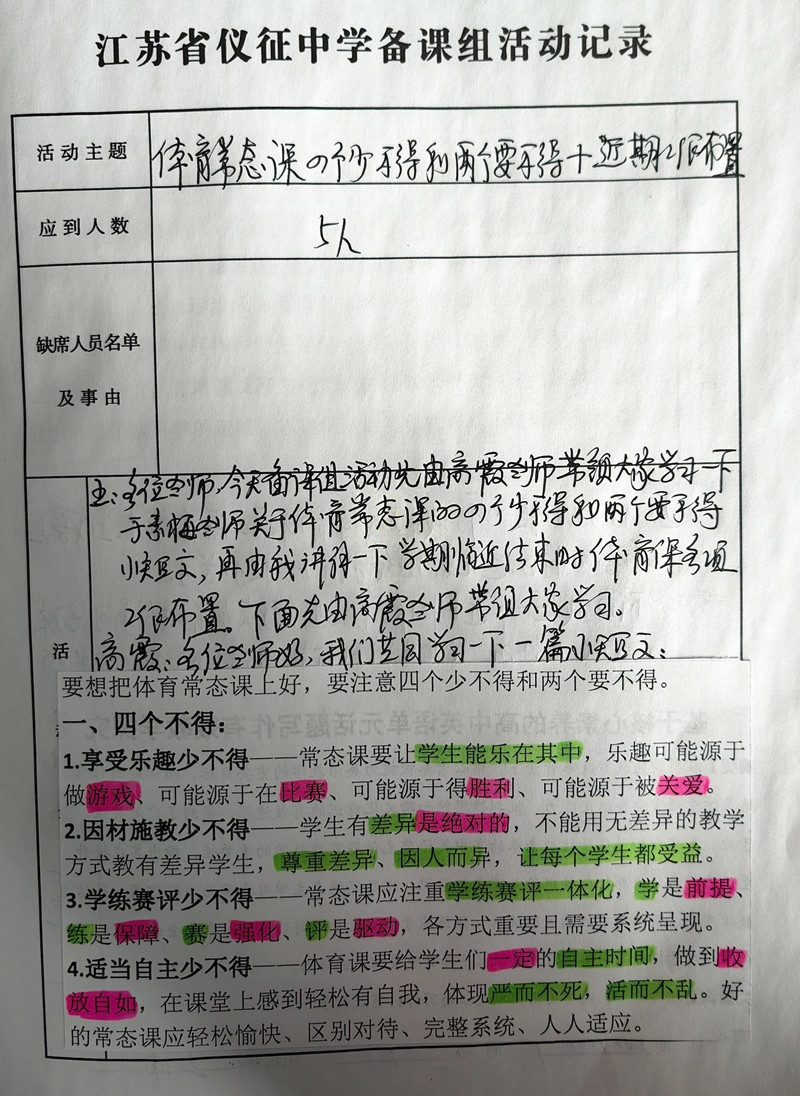 江苏省仪征中学备课组活动记录
活动主题
体育常态课四个少不得和两个要不得+近期工作布置
应到人数
5人
缺席人员名单
及事由
主：各位老师，今天备课组活动先由高霞老师带领大家学习一下
于素梅老师关于体育常态课的四个少不得和两个要不得
小短文，再由我讲一下学期临近结束时体育课各项
工作布置。下面先由高霞老师带领大家学习。
活
高霞：各位老师好，我们共同学习一下一篇小短文：
要想把体育常态课上好，要注意四个少不得和两个要不得。
一、四个不得：
1.享受乐趣少不得——常态课要让学生能乐在其中，乐趣可能源于
做游戏、可能源于在比赛、可能源于得胜利、可能源于被关爱。
2.因材施教少不得——学生有差异是绝对的，不能用无差异的教学
方式教有差异学生，尊重差异、因人而异，让每个学生都受益。
3.学练赛评少不得——常态课应注重学练赛评一体化，学是前提、
练是保障、赛是强化、评是驱动，各方式重要且需要系统呈现。
4.适当自主少不得——体育课要给学生们一定的自主时间，做到收
放自如，在课堂上感到轻松有自我，体现严而不死，活而不乱。好
的常态课应轻松愉快、区别对待、完整系统、人人适应。